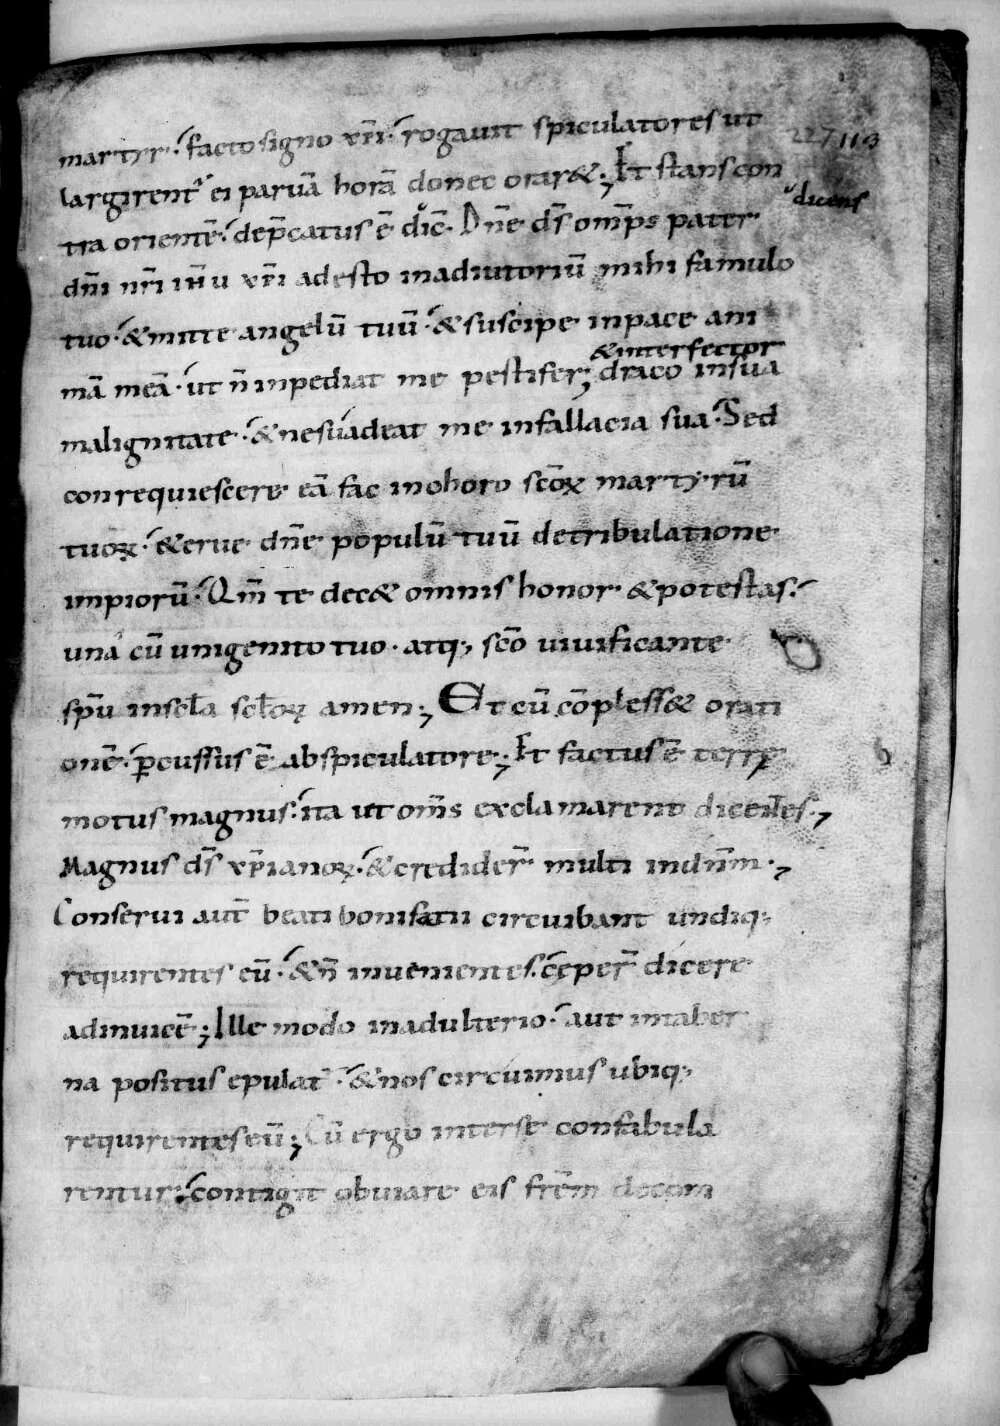 martyr. facto signo xp̄i. rogauit spiculatores ut
227 113
largirent᷑ ei paruā horā donec orar&; Et stans con
dicens
tra orientē. dep̄catus ē dic̄. Dn̄e ds̄ om̄ps pater
dn̄i nr̄i ih̄u xp̄i adesto inadiutoriū mihi famulo
tuo. & mitte angelū tuū. & suscipe inpace ani
& interfector
mā meā. ut n̄ inpediat me pestifer; draco insua
malignitate. & nesuadeat me infallacia sua. Sed
conrequiescere eā fac inohoro sc̄oꝝ martyrū
tuoꝝ. & erue dn̄e populū tuū detribulatione
impiorū. Qm̄ te dec& omnis honor & potestas.
una cū unigenito tuo. atq; sc̄o uiuificante
sp̄u insc̄la scl̄oꝝ amen; Et cū cōpless& orati
onē. ꝑcussus ē abspiculatore; Et factus ē terrę
motus magnus. ita ut om̄s exclamarent dicentes;
Magnus ds̄ xp̄ianoꝝ. & credider̄ multi indn̄m;
Conserui aut̄ beati bonifatii circuibant undiq;
requirentes eū. & n̄ inuenientes. cęper̄ dicere
adinuicē; Ille modo inadulterio. aut intaber
na positus epulat᷑. & nos circuimus ubiq;
requirentes eū; Cū ergo interse confabula
rentur. contigit obuiare eis frēm decom